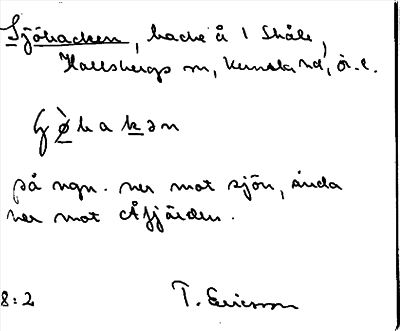 Sjöbacken, backe å 1 Skåle,
Hallsbergs sn, Kumla hd, ör. l.
på vgn. ner mot sjön, ända
ner mot Åfjärden.
8:2 T. Ericsson